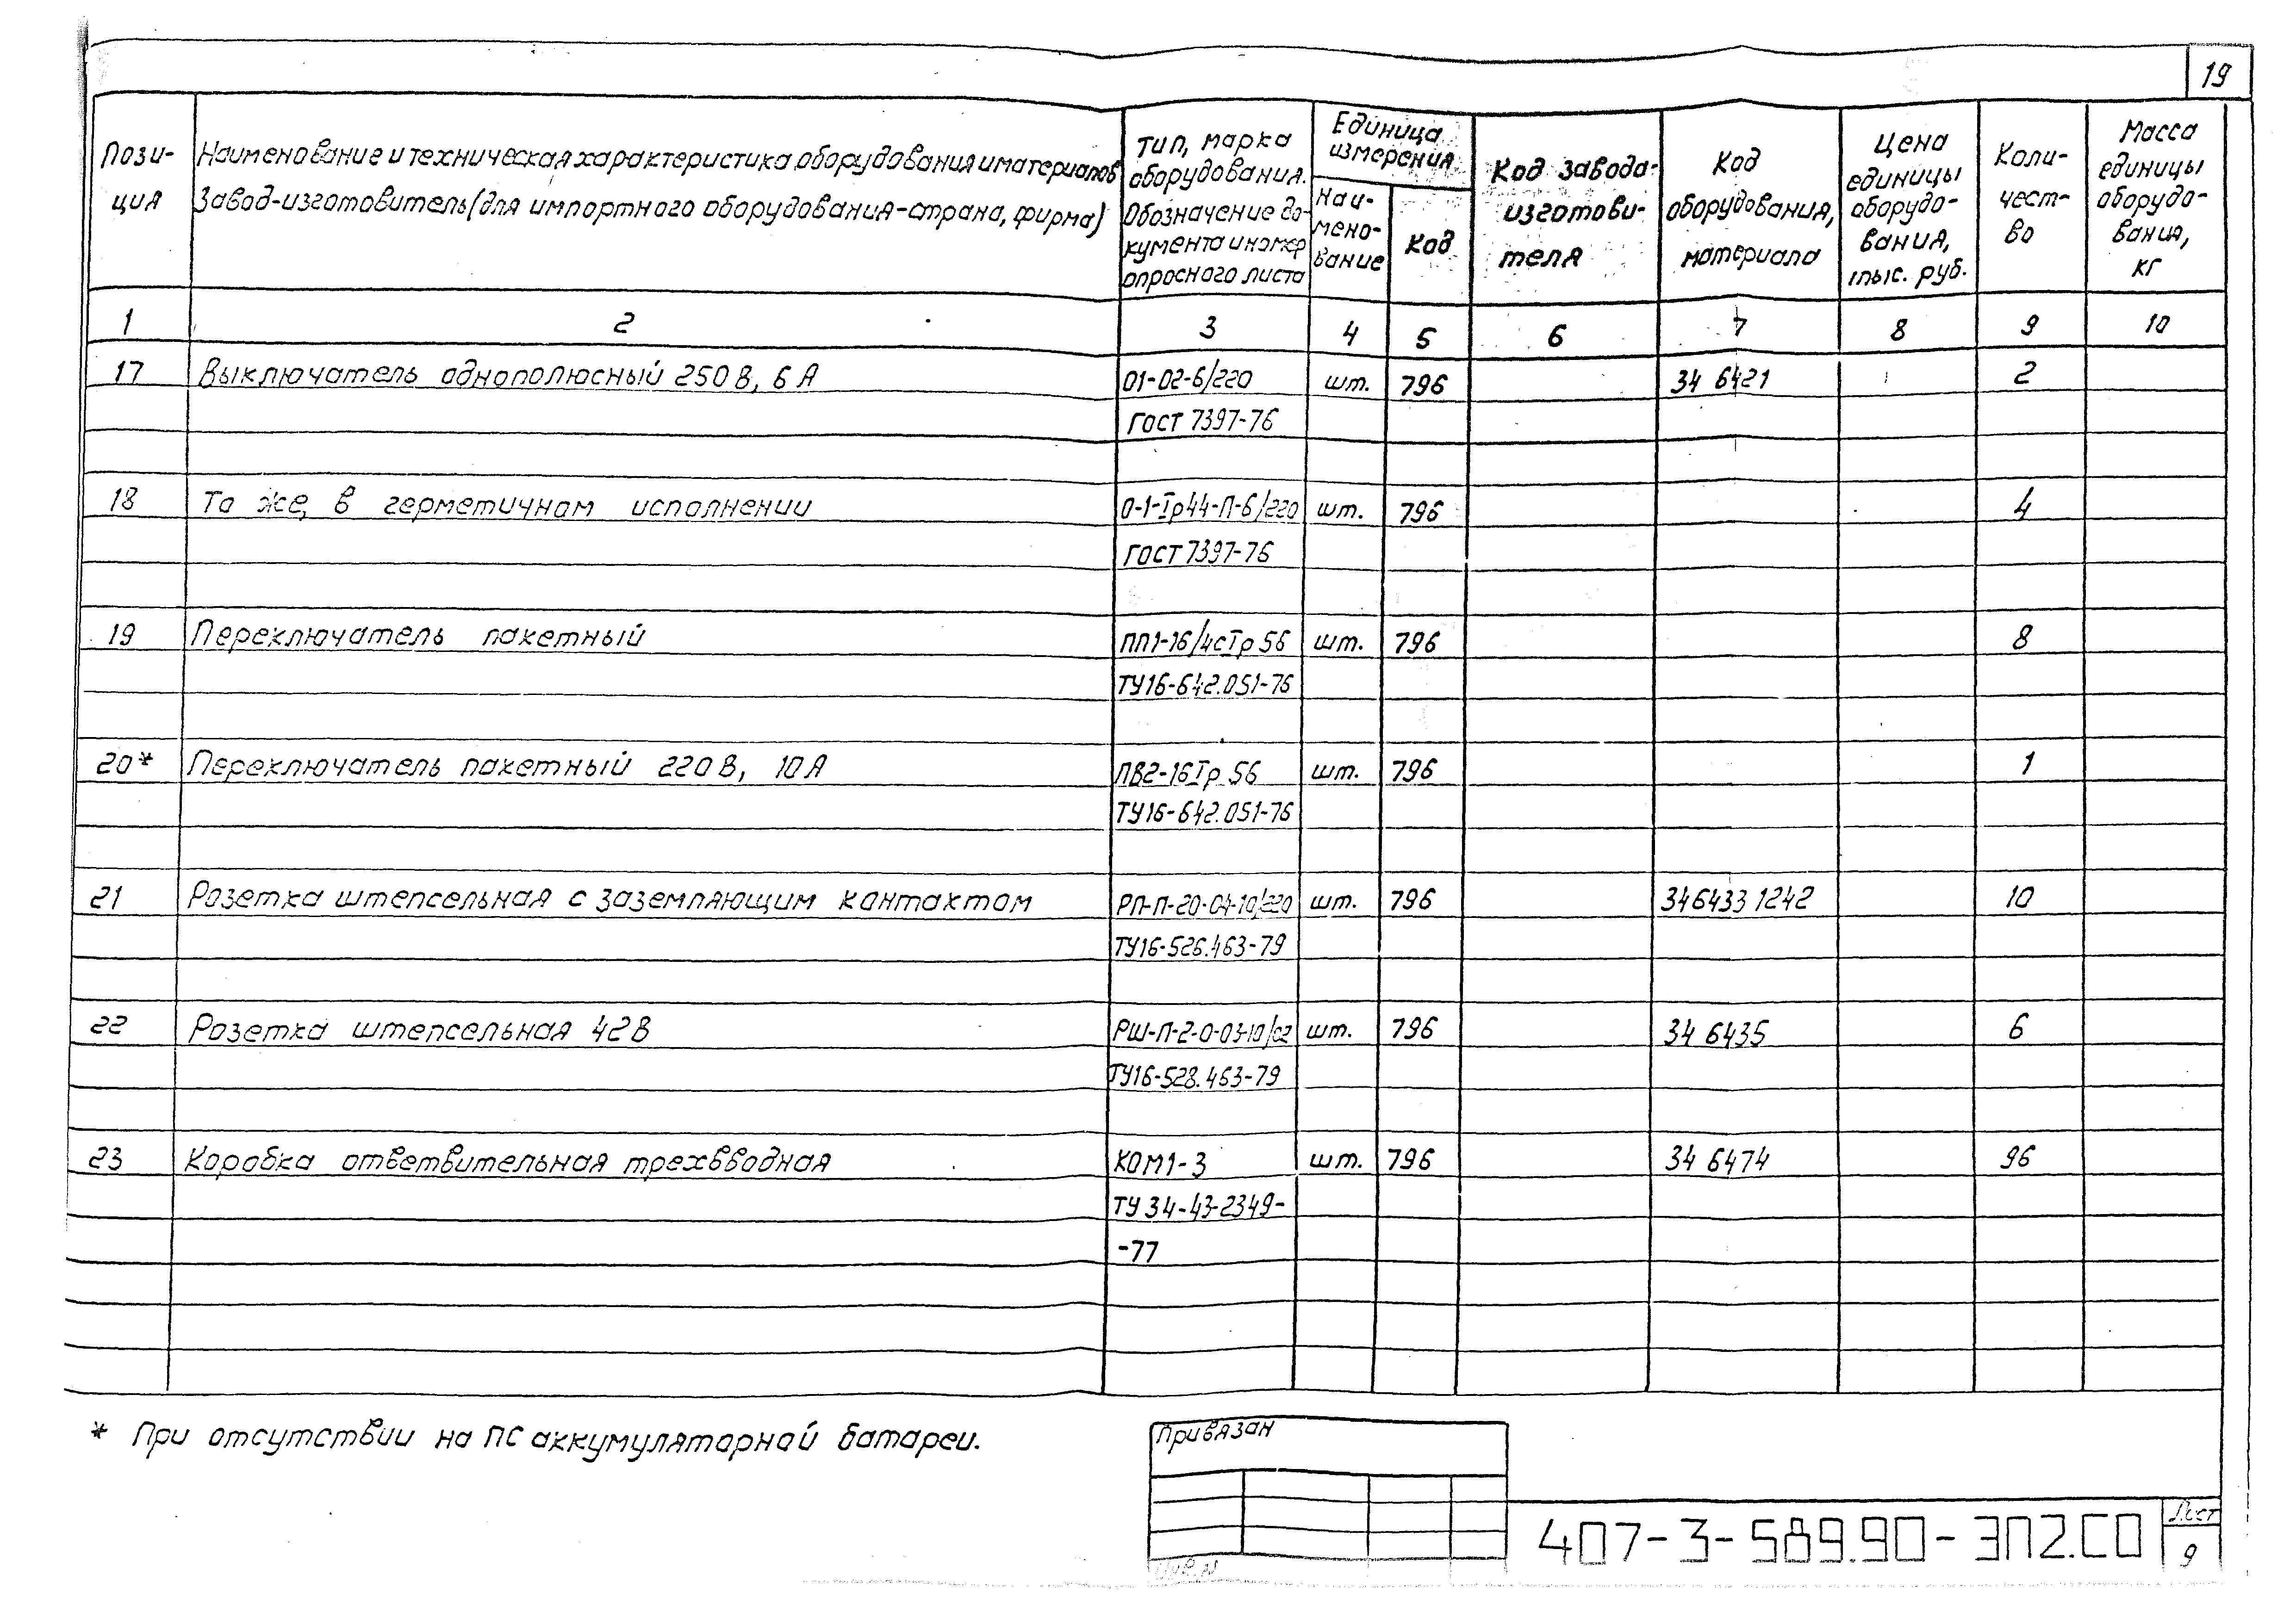 19
Пози-
ция
Наименование и техническая характеристика оборудования и материалов
Завод-изготовитель (для импортного оборудования-страна, фирма)
Тип, марка
оборудования.
Обозначение до-
кумента и номер
опросного листа
Единица
измерения
Наи-
мено-
вание
Код
Код завода-
изготови-
теля
Код
оборудования,
материала
Цена
единицы
оборудо-
вания,
тыс. руб.
Коли-
чест-
во
Масса
единицы
оборудо-
вания,
кг
1 2 3 4 5 6 7 8 9 10
17 Выключатель однополюсный 250 В, 6 А 01-02-6/220 шт. 796 34 6421 2
ГОСТ 7397-76
18 То же, в герметичном исполнении 0-1-Iр44-П-6/220 шт. 796 4
ГОСТ 7397-76
19 Переключатель пакетный ПП1-16/4с Iр 56 шт. 796 8
ТУ16-642.051-76
20* Переключатель пакетный 220 В, 10 А ПВ2-16 Iр 56 шт. 796 1
ТУ16-642.051-76
21 Розетка штепсельная с заземляющим контактом РП-П-20-04-10/220 шт. 796 346433 1242 10
ТУ16-526.463-79
22 Розетка штепсельная 42 В РШ-П-2-0-03-10/42 шт. 796 34 6435 6
ТУ16-528.463-79
23 Коробка ответвительная трехвводная КОМ1-3 шт. 796 34 6474 96
ТУ 34-43-2349-
-77
* При отсутствии на ПС аккумуляторной батареи.
Привязан
Инв. N
407-3-589.90-ЭП2.СО
Лист
9